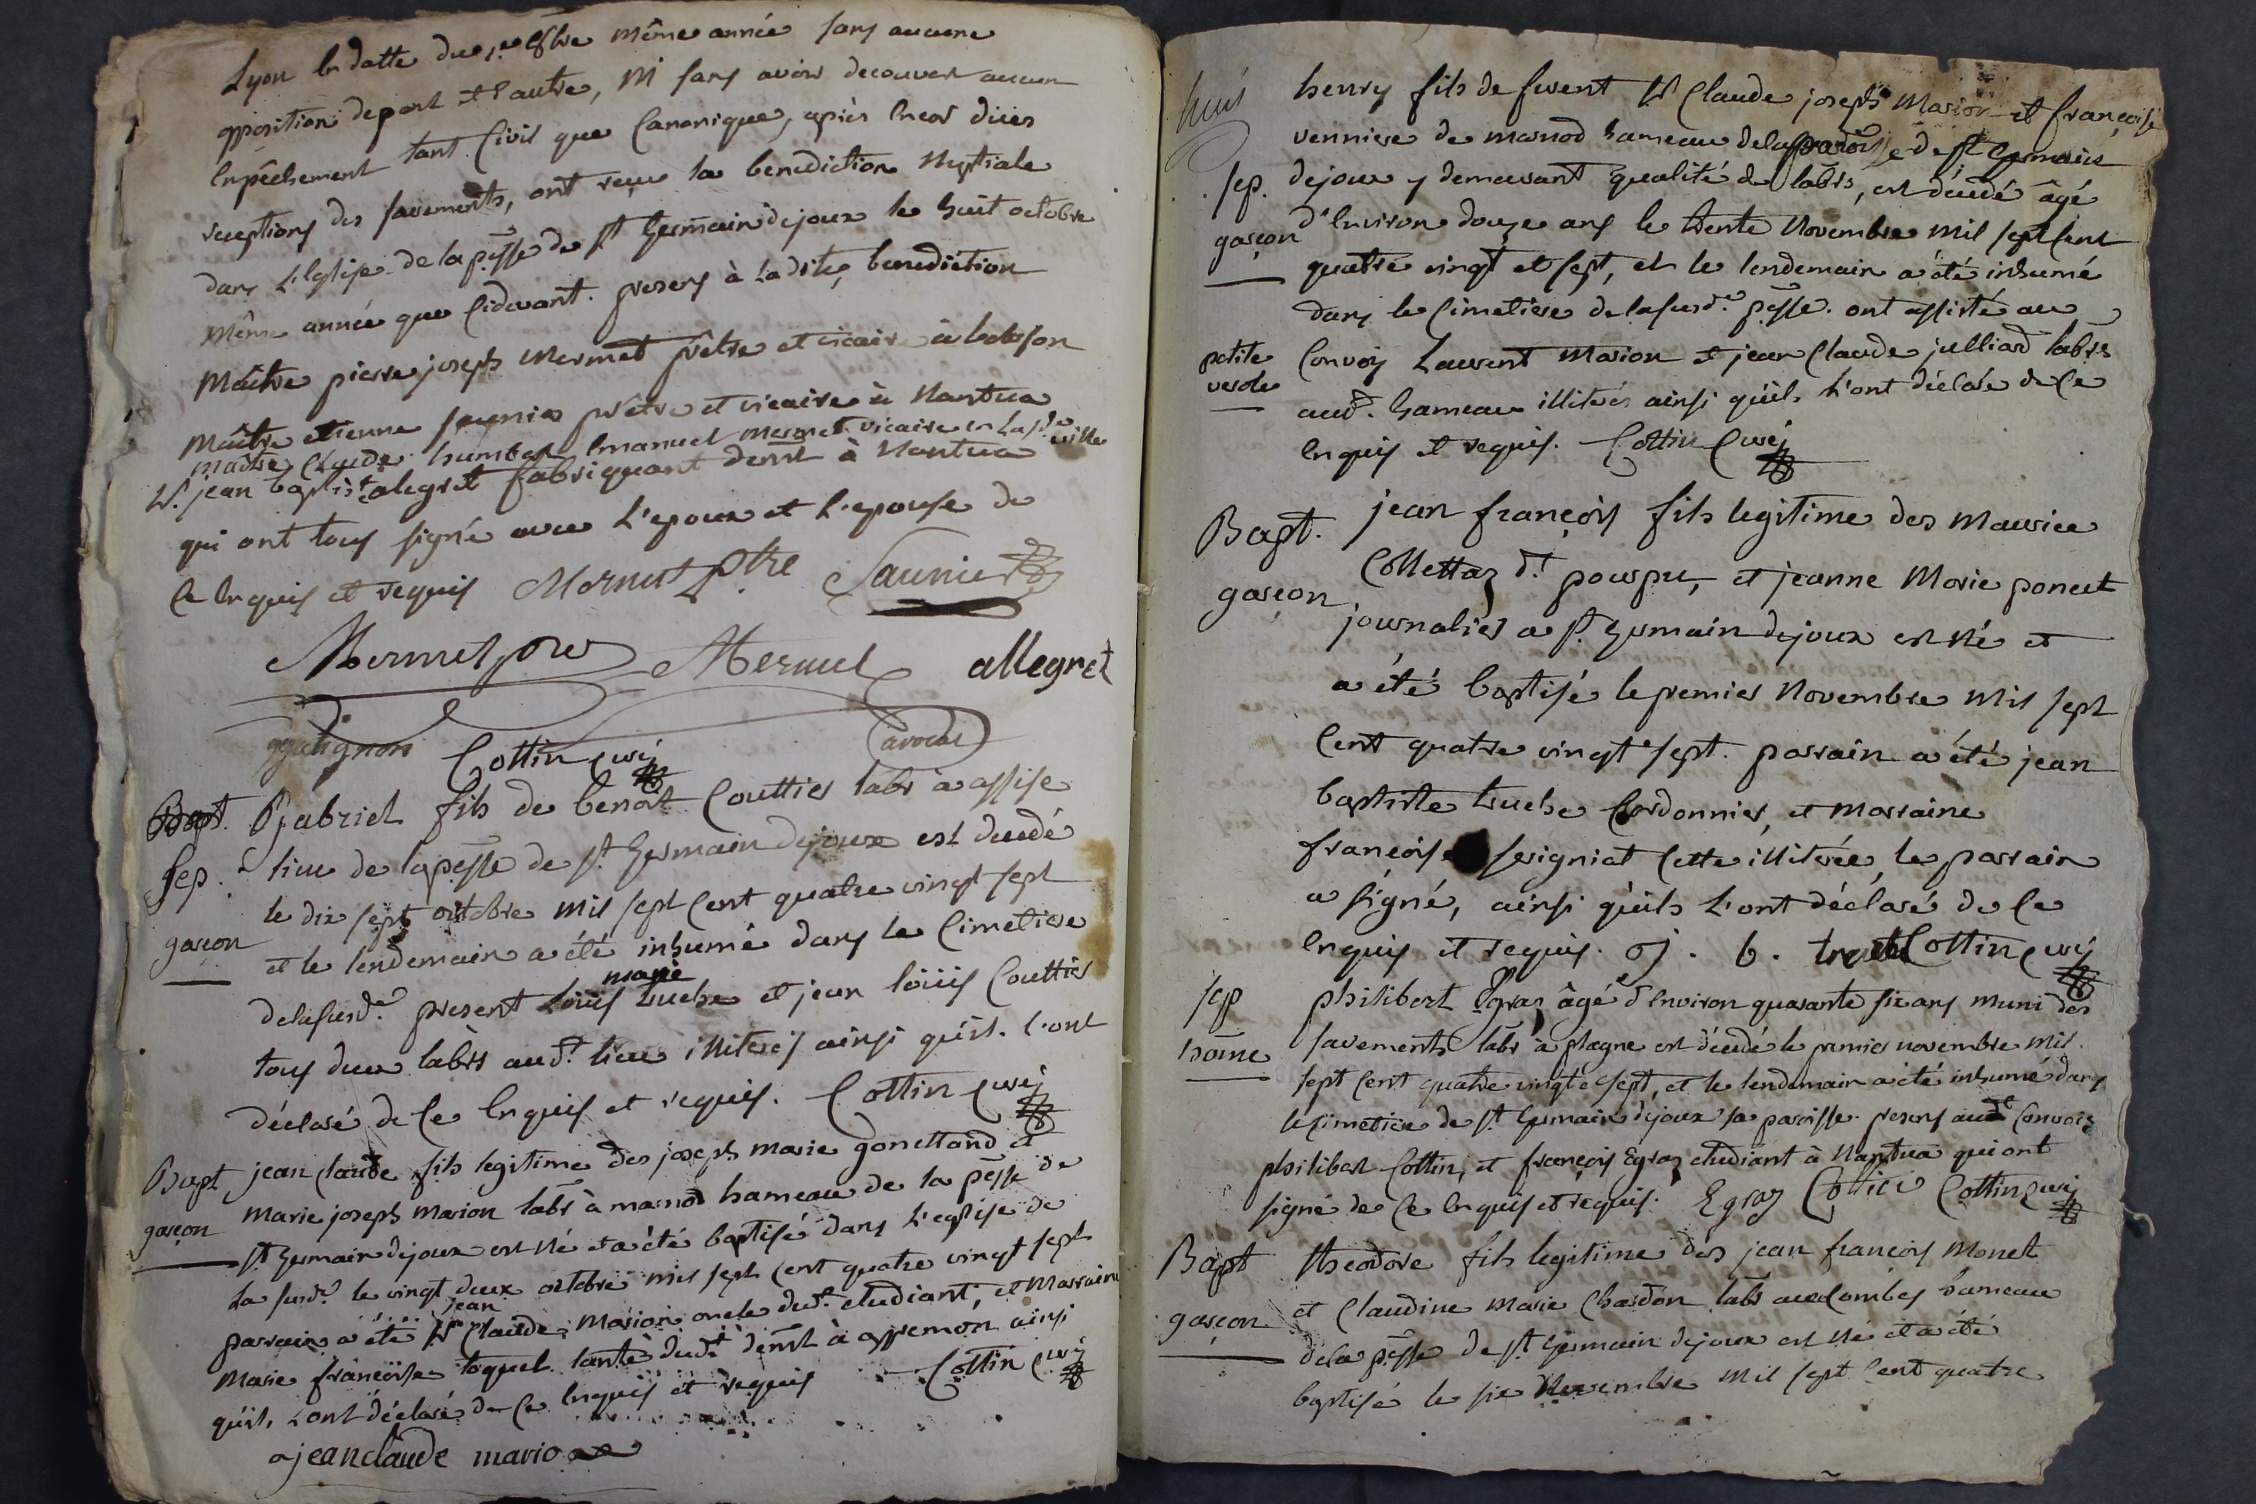 Lyon en datte du 1er 8bre même année sans aucune
opposition depart et d'autre, ni sans avoir decouvert aucun
enpêchement tant Civil que Canonique, après encor dües
receptions des sacements, ont reçu la benediction Nuptiale
dans L'eglise de la pssse de st germain dejoux le huit octobre
même année que cidevant. presens à la dite benediction
Maitre pierre joseph Mermet prêtre et vicaire à
Maitre etienne prêtre et vicaire à Nantua
maitre Claude humbert Emanuel mermet vicaire en lasde ville
sr. jean baptiste alegret fabriquant demt à Nantua
qui ont tous signé avec L'epoux et L'epouse de
Ce enquis et requis Mermet Ptre Saunier
Mermet ptre Mermet allegret
Cottin curé avocat
Bapt. Gabriel fils de benoit Couttier labr à assise
Sep. lieu de la pssse de st germain dejoux est decedé
le dix sept octobre mil sept Cent quatre vingt sept
garçon et le lendemain a été inhumé dans le Cimetiere
marie
delasusde. present Loüis tuche et jean loüis Couttier
tous deux labrs audt. lieu illiterés ainsi quils l'ont
déclaré de Ce enquis et requis. Cottin curé
Bapt jean Claude fils legitime des joseph marie gonettand et
garçon marie joseph marion labr à marnod hameau de la pssse de
st germain dejoux est né et a été baptisé dans L'eglise de
La susde. le vingt deux octobre mil sept Cent quatre vingt sept
jean
parrain a été sr Claude Marion oncle dudt. etudiant, et Marraine
Marie françoise toquet tante dudt demt à appremon ainsi
quils L'ont déclaré de Ce enquis et requis Cottin curé
jeanclaude marion
henry fils de sieur Claude joseph Marion et françoise
vernniere de marnod hameau delaparoisse de st germain
Sep. dejoux y demeurant qualité de labrs, est décédé âgé
garçon d'environ douze ans le trente Novembre mil sept Cent
quatre vingt et sept, et le lendemain a été inhumé
dans le Cimetiere de lasusde. pssse. ont assisté au
petite Convoy Laurent Marion et jean Claude julliard labrs
verole audt. hameau illiterés ainsi quils L'ont déclaré de Ce
enquis et requis. Cottin curé
Bapt. jean françois fils legitime des Maurice
Collettaz dt. pourpu, et jeanne Marie poncet
garçon journalier a st germain dejoux est né et
a été baptisé le premier Novembre mil sept
Cent quatre vingt sept. parrain a été jean
baptiste tuche Cordonnier, et marraine
françoise seigniat Cette illiterée, le parrain
a signé, ainsi quils L'ont déclaré de Ce
enquis et requis. j. b. Cottin curé
Sep philibert Egraz âgé d'environ quarante six ans muni des
home sacements labr à plagne est décédé le premier novembre mil
sept Cent quatre vingt et sept, et le lendemain a été inhumé dans
le Cimetiere de st germain dejoux sa paroisse. presens audt Convois
philibert Cottin, et françois Egraz etudiant à Nantua qui ont
signé de Ce enquis et requis. Egraz Cottin Cottin curé
Bapt theodore fils legitime des jean françois Monet
garçon et Claudine Marie Chardon labr aux Combes hameau
dela pssse de st germain dejoux est né et a été
baptisé le six Novembre mil sept Cent quatre